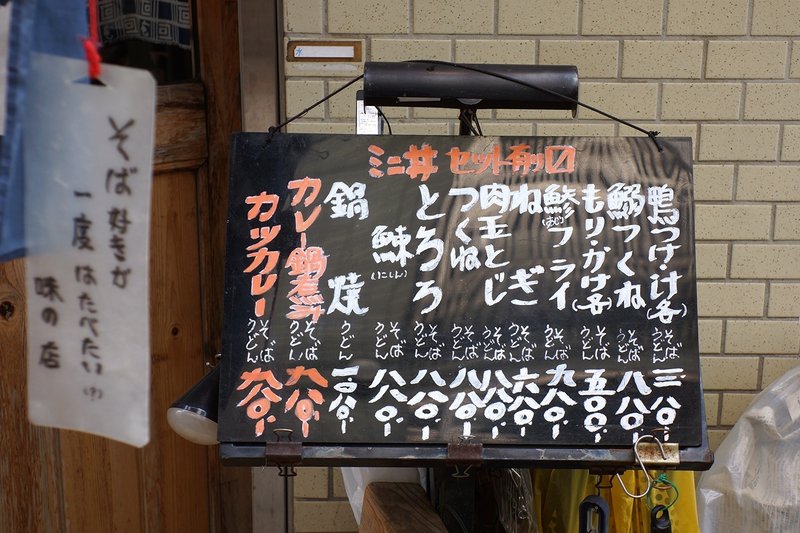 ミニ丼 セット有り〼
鴨つけ・け(各) そば うどん
鰯つくね そば うどん 八八〇
もり・かけ(各) そば うどん 五〇〇
鯵フライ そば うどん 九八〇
ねぎ そば うどん 六八〇
肉玉とじ そば うどん 八八〇
つくね そば うどん 八八〇
とろろ そば うどん 八八〇
鰊(にしん) そば うどん 八八〇
鍋焼 うどん
カレー鍋煮み そば うどん 九八〇
カツカレー そば うどん 九八〇
そば好きが
一度はたべたい(?)
味の店
水